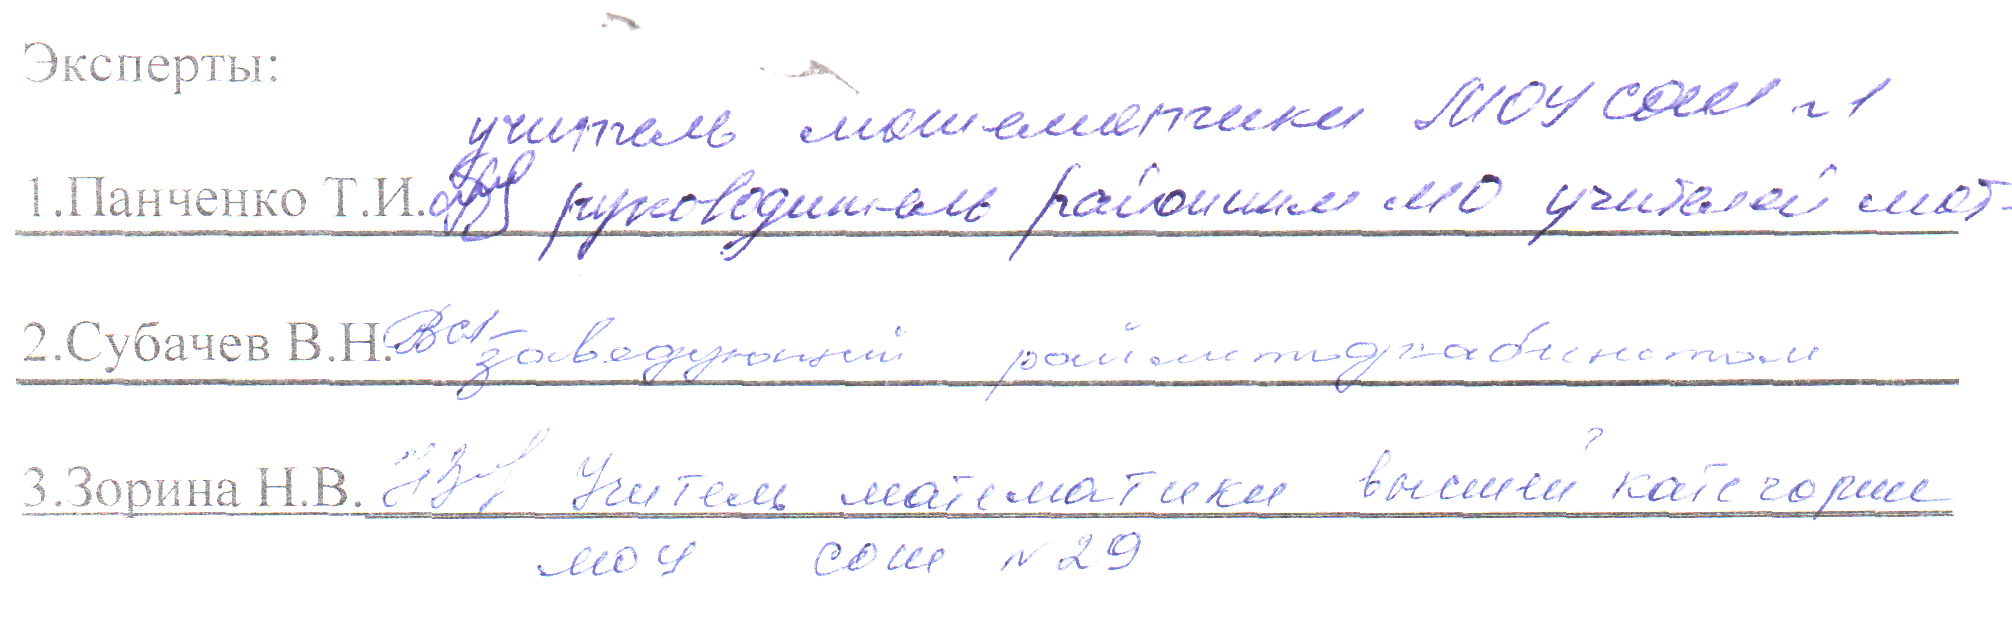 Эксперты:
учитель математики МОУ СОШ №1
1.Панченко Т.И. руководитель районным МО учителей мат-
2.Субачев В.Н. заведующий райметодкабинетом
3.Зорина Н.В. Учитель математики высшей категории
МОУ СОШ №29